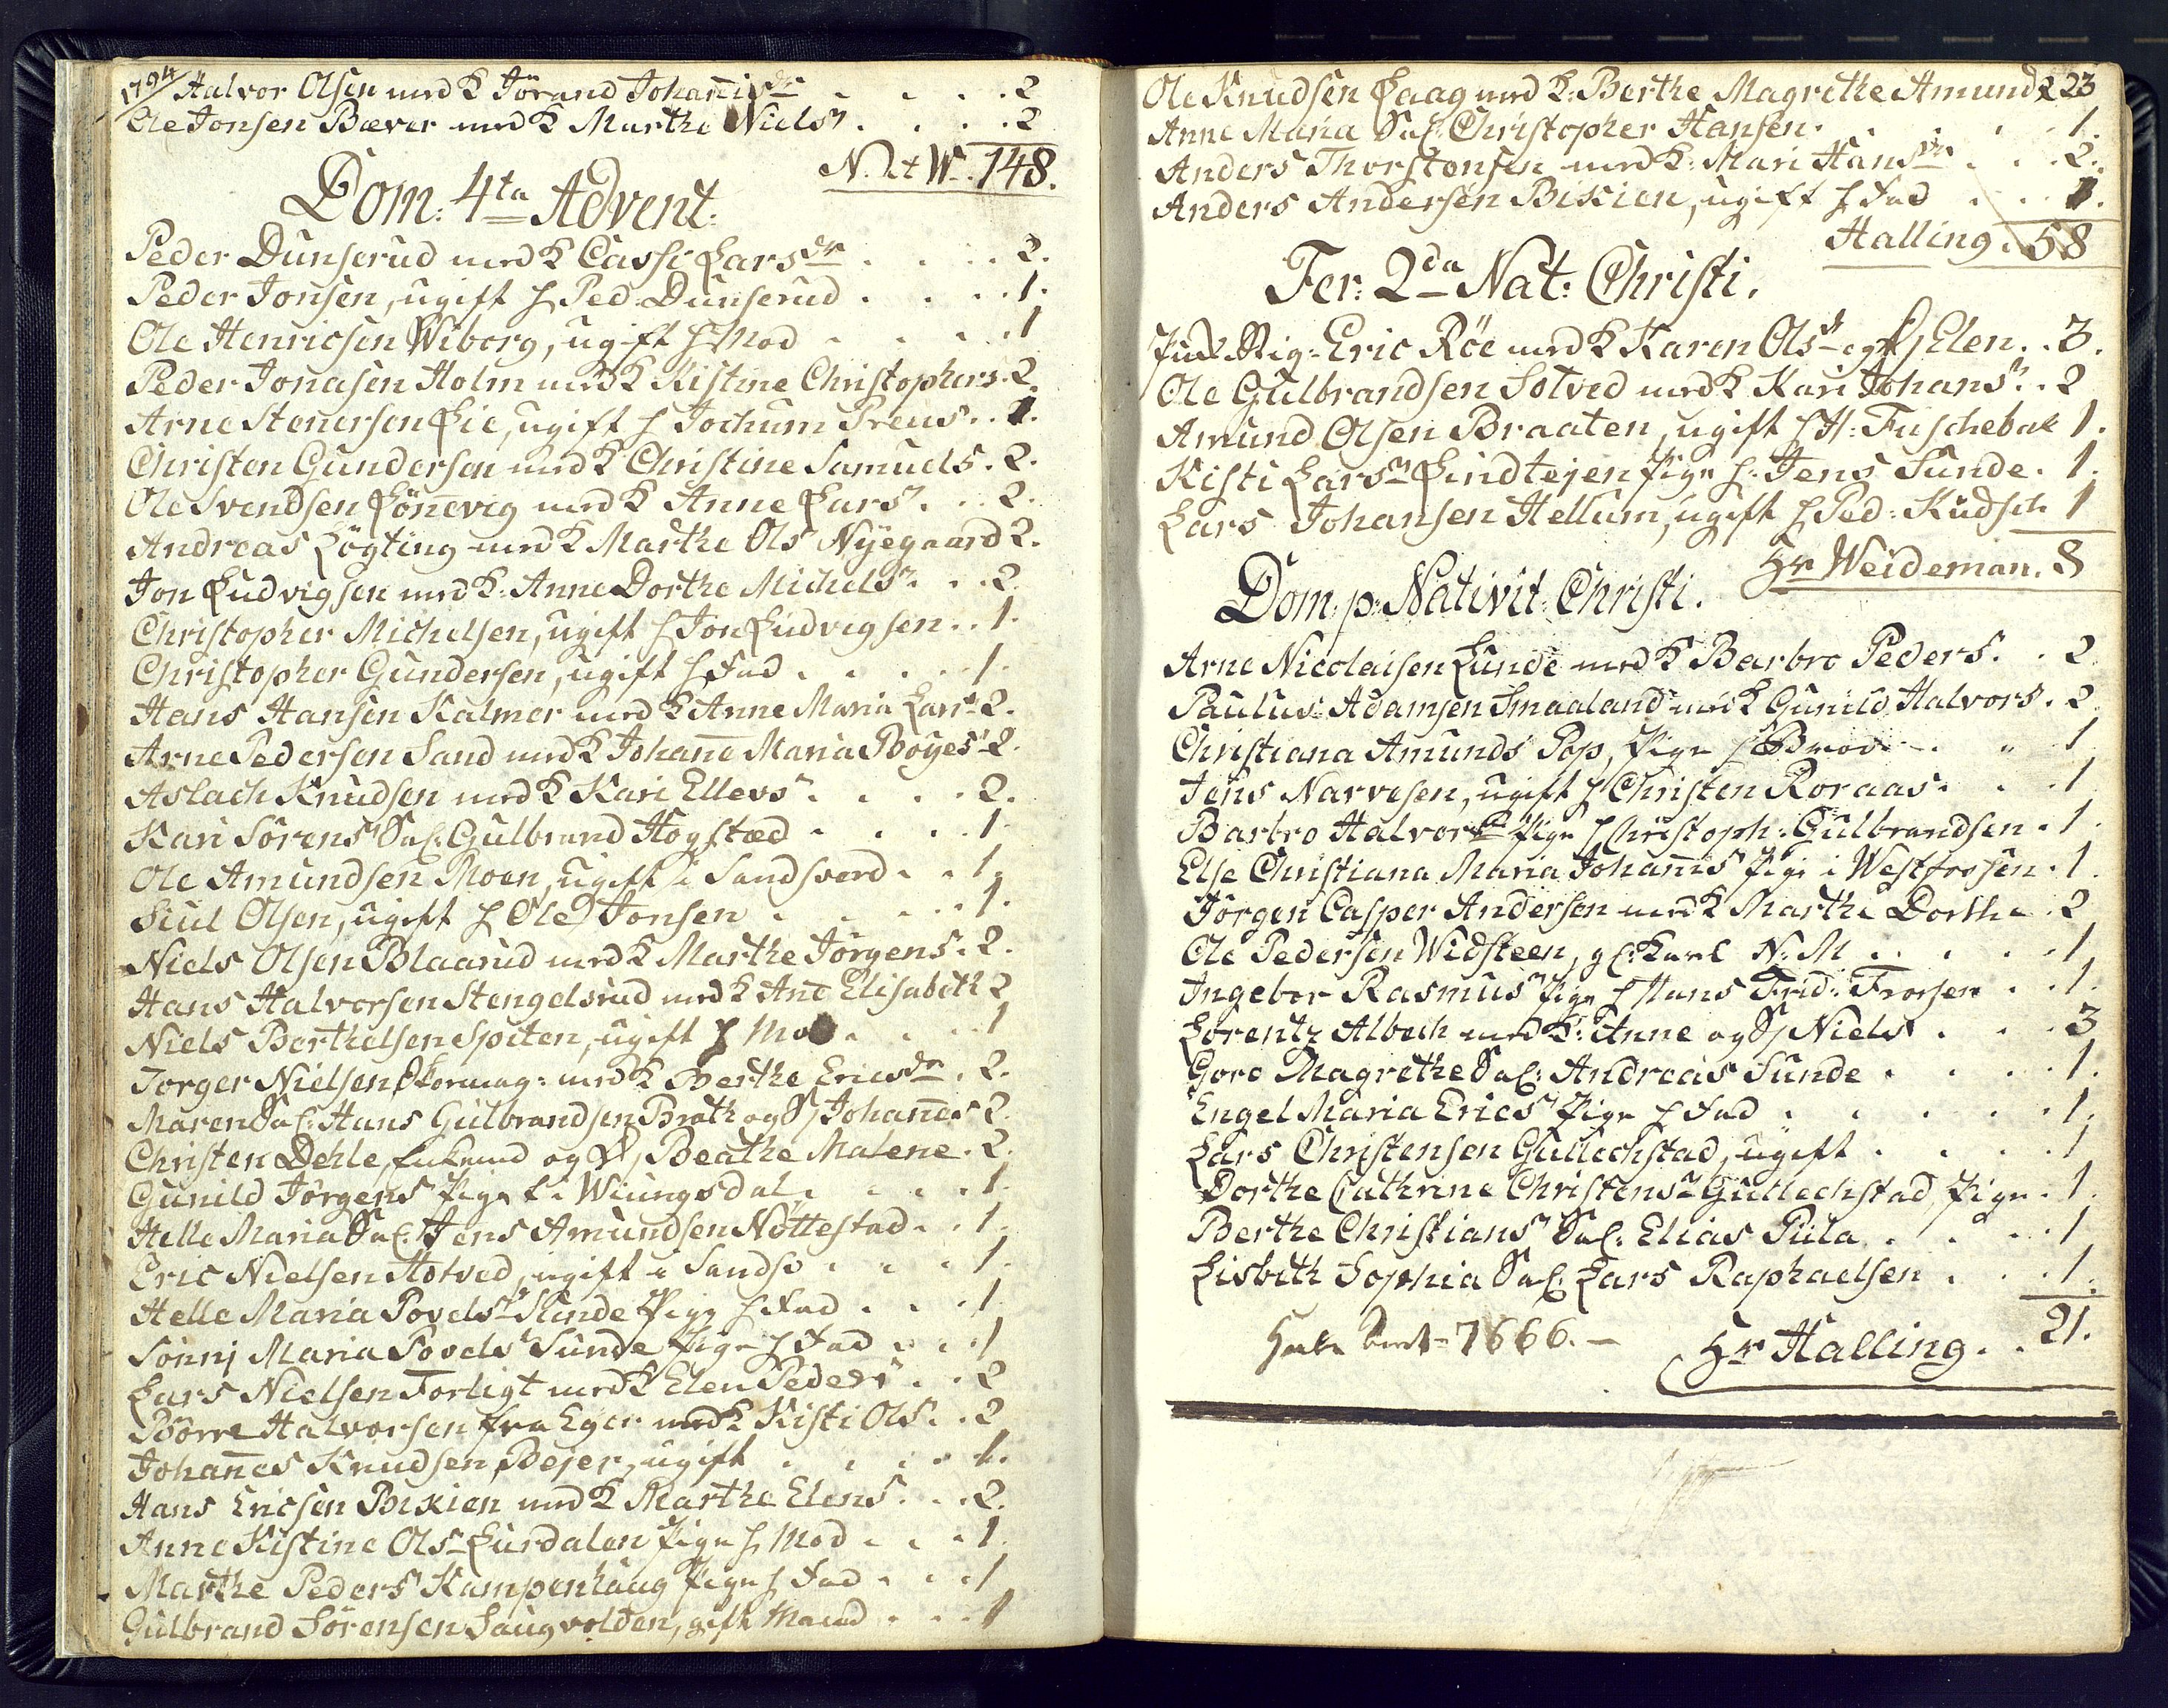 1794
Halvor Olsen med K Jörand Johannisdr . . . . 2
Ole Jonsen Bæver med K Marthe Nielsr . . . . 2
N. et W. 148.
Dom: 4ta Advent:
Peder Dunserud med K Cassi Larsdr . . . . 2.
Peder Jonsen, ugift h Ped: Dunserud . . . . 1.
Ole Henricsen Wiborg, ugift h Mod . . . . 1
Peder Jonasen Holm med K Kistine Christophers. 2.
Arne Stenersen Lie, ugift h Jochum Preus . . 1.
Christen Gundersen med K Christine Samuels. 2.
Ole Svendsen Lönnevig med K Anne Larsr. . . 2.
Andreas Lögting med K Marthe Ols Nyegaard 2.
Jon Ludvigsen med K: Anne Dorthe Michelsr. . . 2.
Christopher Michelsen, ugift h Jon Ludvigsen . . 1.
Christopher Gundersen, ugift h Fad . . . . 1.
Hans Hansen Kalmer med K Anne Maria Larsr 2.
Arne Pedersen Sand med K Johanne Maria Böyesr 2.
Aslach Knudsen med K Kari Ellevsr . . . . 2.
Kari Sörensr Sal: Gulbrand Hogstæd . . . . 1.
Ole Amundsen Moen, ugift i Sandsverd . . 1.
Siul Olsen, ugift h Ole Jonsen . . . . 1.
Niels Olsen Blaarud med K Marthe Jörgens. 2.
Hans Halvorsen Stengelsrud med K Ane Elisabeth 2
Niels Berthelsen Spiten, ugift h Mod . . . 1
Torger Nielsen Skormag: med K Berthe Ericsdr . 2.
Maren Sal: Hans Gulbrandsen Bræth og S Johannes 2.
Christen Dehle, Enkemand og D, Beathe Malene. 2.
Gunild Jörgens Pige f i Wiungsdal . . . 1.
Helle Maria Sal: Jens Amundsen Nöttestad . . 1.
Eric Nielsen Hotved, ugift i Sandsv . . . 1.
Helle Maria Povelsr Sunde Pige h Fad . . . 1
Sönnj Maria Povels Sunde Pige h Fad . . . 1
Lars Nielsen Forligt med K Elen Pedersr . . 2
Börre Halvorsen fra Eger med K Kisti Ols. . 2
Johannes Knudsen Bejer, ugift . . . . 1.
Hans Ericsen Bixien med K Marthe Elens . . . 2.
Anne Kistine Olsr Lurdalen Pige h Mod . . . 1.
Marthe Pedersr Kampenhaug Pige h Fad . . . 1
Gulbrand Sörensen Saugvolden, gift Mand . . . 1
Ole Knudsen Laag med K: Berthe Magrethe Amunds 2 23
Anne Maria Sal: Christopher Hansen. . . . 1.
Anders Thorstensen med K: Mari Hansdr . . . 2.
Anders Andersen Bixien, ugift h Fad . . . 1.
Halling. 58
Fer: 2da Nat: Christi.
Eric Röe med K Karen Olsdr og S Elen . . 3.
Ole Gulbrandsen Sotved med K Kari Johansr. . 2
Amund Olsen Braaten, ugift h H: Fuschebak 1.
Kisti Larsr Lindtejen Pige h. Jens Sunde. 1.
Lars Johansen Hellum, ugift h Ped: Kudsch 1
Hr Weideman. 8
Dom. p: Nativit: Christi.
Arne Nicolaisen Lunde med K Barbro Peders. . 2.
Paulus Adamsen Smaaland med K Gunild Halvors. 2.
Christiana Amunds Pop, Pige h Broder . . . 1
Jens Narvesen, ugift h Christen Roraas. . . 1.
Barbro Halvorsdr Pige h Christoph: Gulbrandsen . 1.
Else Christiana Maria Johannis Pige i Westfossen . 1.
Jörgen Casper Andersen med K Marthe Dorthe . 2
Ole Pedersen Widsteen, gl: Karl N: M . . . . 1
Ingebor Rasmusr Pige h Hans Frid: Frorsen . . 1.
Lorentz Albech med K: Anne og S Niels . . . 3
Goro Magrethe Sal: Andreas Sunde . . . . 1.
Engel Maria Ericsr Pige h Fad . . . . . 1.
Lars Christensen Gullechstad, ugift . . . . 1
Dorthe Cathrine Christensr Gullechstad Pige . 1.
Berthe Christiansr Sal: Elias Piila . . . . 1
Lisbeth Sophia Sal: Lars Raphaelsen . . . 1.
21.
7666. — Hr Halling . .